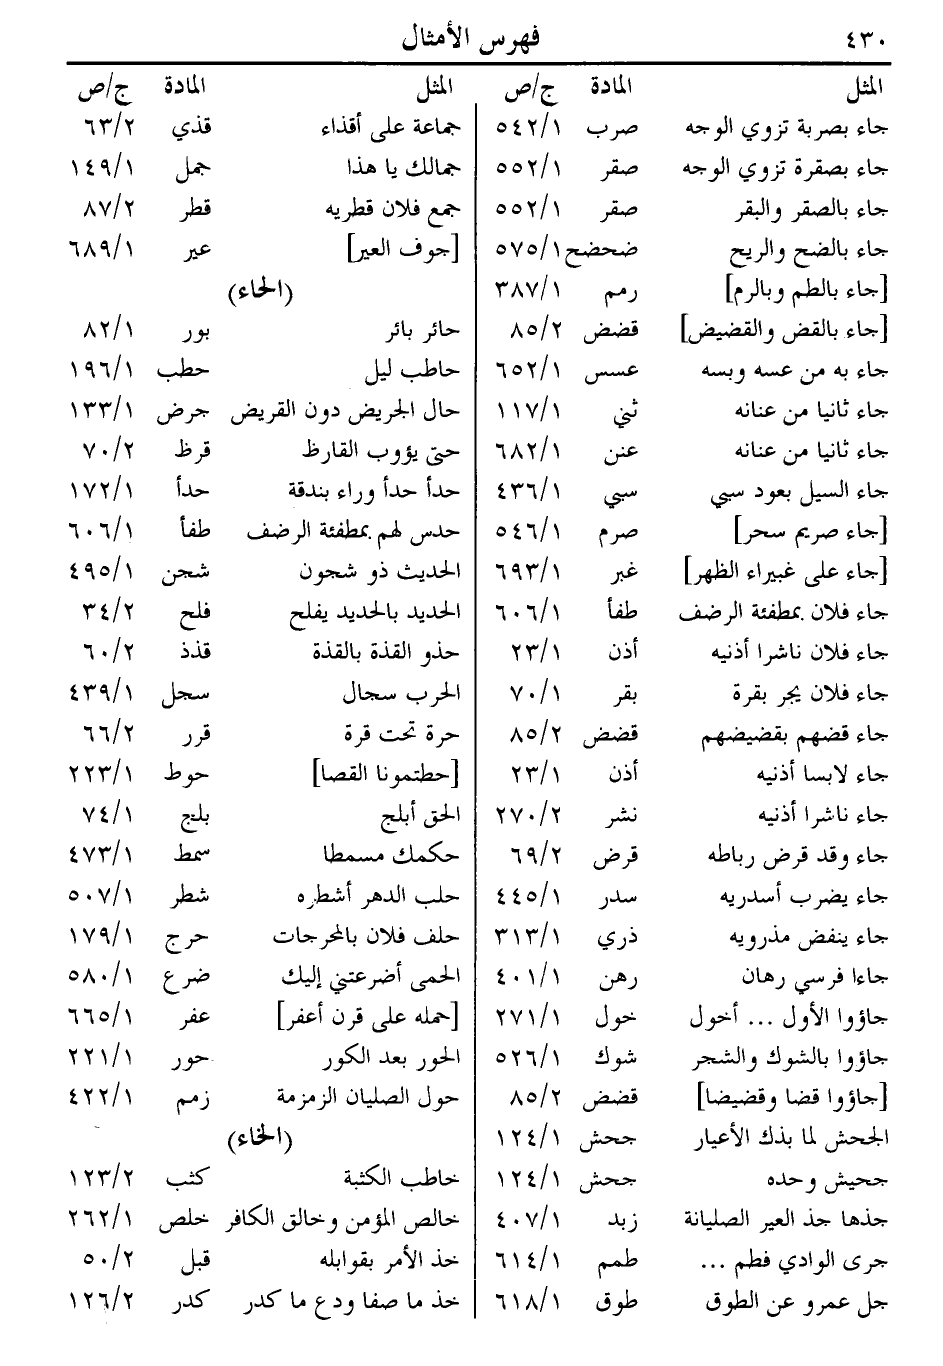 ٤٣٠ فهرس الأمثال
المثل المادة ج/ص
جاء بصربة تزوي الوجه صرب ٥٤٢/١
جاء بصقرة تزوي الوجه صقر ٥٥٢/١
جاء بالصقر والبقر صقر ٥٥٢/١
جاء بالضح والريح ضحضح ٥٧٥/١
[جاء بالطم وبالرم] رمم ٣٨٧/١
[جاء بالقض والقضيض] قضض ٨٥/٢
جاء به من عسه وبسه عسس ٦٥٢/١
جاء ثانيا من عنانه ثني ١١٧/١
جاء ثانيا من عنانه عنن ٦٨٢/١
جاء السيل بعود سبي سبي ٤٣٦/١
[جاء صريم سحر] صرم ٥٤٦/١
[جاء على غبيراء الظهر] غبر ٦٩٣/١
جاء فلان بمطفئة الرضف طفأ ٦٠٦/١
جاء فلان ناشرا أذنيه أذن ٢٣/١
جاء فلان يجر بقرة بقر ٧٠/١
جاء قضهم بقضيضهم قضض ٨٥/٢
جاء لابسا أذنيه أذن ٢٣/١
جاء ناشرا أذنيه نشر ٢٧٠/٢
جاء وقد قرض رباطه قرض ٦٩/٢
جاء يضرب أسدريه سدر ٤٤٥/١
جاء ينفض مذرويه ذري ٣١٣/١
جاءا فرسي رهان رهن ٤٠١/١
جاؤوا الأول ... أخول خول ٢٧١/١
جاؤوا بالشوك والشجر شوك ٥٢٦/١
[جاؤوا قضا وقضيضا] قضض ٨٥/٢
الجحش لما بذك الأعيار جحش ١٢٤/١
جحيش وحده جحش ١٢٤/١
جذها جذ العير الصليانة زبد ٤٠٧/١
جرى الوادي فطم ... طمم ٦١٤/١
جل عمرو عن الطوق طوق ٦١٨/١
المثل المادة ج/ص
جماعة على أقذاء قذي ٦٣/٢
جمالك يا هذا جمل ١٤٩/١
جمع فلان قطريه قطر ٨٧/٢
[جوف العير] عير ٦٨٩/١
(الحاء)
حائر بائر بور ٨٢/١
حاطب ليل حطب ١٩٦/١
حال الجريض دون القريض جرض ١٣٣/١
حتى يؤوب القارظ قرظ ٧٠/٢
حدأ حدأ وراء بندقة حدأ ١٧٢/١
حدس لهم بمطفئة الرضف طفأ ٦٠٦/١
الحديث ذو شجون شجن ٤٩٥/١
الحديد بالحديد يفلح فلح ٣٤/٢
حذو القذة بالقذة قذذ ٦٠/٢
الحرب سجال سجل ٤٣٩/١
حرة تحت قرة قرر ٦٦/٢
[حطتمونا القصا] حوط ٢٢٣/١
الحق أبلج بلج ٧٤/١
حكمك مسمطا سمط ٤٧٣/١
حلب الدهر أشطره شطر ٥٠٧/١
حلف فلان بالمحرجات حرج ١٧٩/١
الحمى أضرعتني إليك ضرع ٥٨٠/١
[حمله على قرن أعفر] عفر ٦٦٥/١
الحور بعد الكور حور ٢٢١/١
حول الصليان الزمزمة زمم ٤٢٢/١
(الخاء)
خاطب الكثبة كثب ١٢٣/٢
خالص المؤمن وخالق الكافر خلص ٢٦٢/١
خذ الأمر بقوابله قبل ٥٠/٢
خذ ما صفا ودع ما كدر كدر ١٢٦/٢